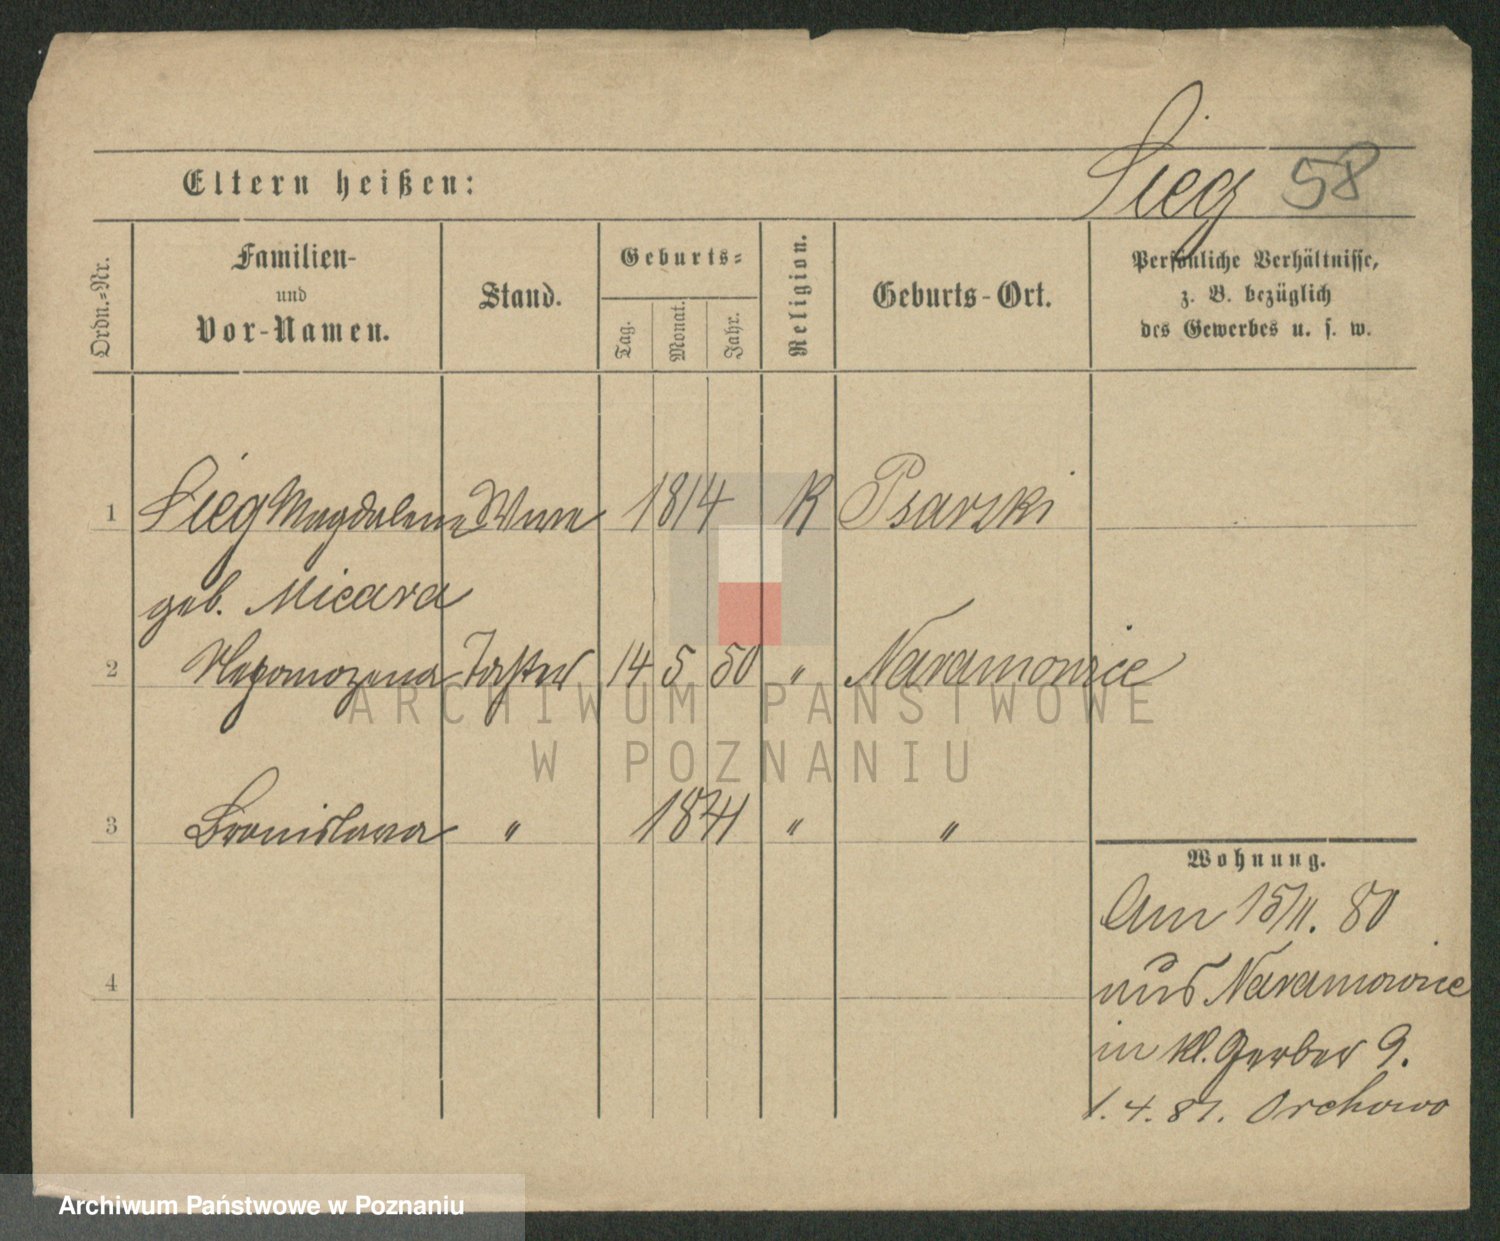 Sieg 58
Eltern heißen:
Ordn.-Nr.
Familien-
und
Vor-Namen.
Stand.
Geburts-
Tag.
Monat.
Jahr.
Religion.
Geburts-Ort.
Persönliche Verhältnisse,
z. B. bezüglich
des Gewerbes u. s. w.
1 Sieg Magdalena Wwe 1814 K Psarski
geb. Micara
2 Nepomozena Tochter 14 5 50 " Naramowice
3 Bronislawa " 1841 " "
4
Wohnung.
Am 15/11. 80
aus Naramowice
in kl. Gerber 9.
1. 4. 81. Orchowo
ARCHIWUM PAŃSTWOWE
W POZNANIU
Archiwum Państwowe w Poznaniu